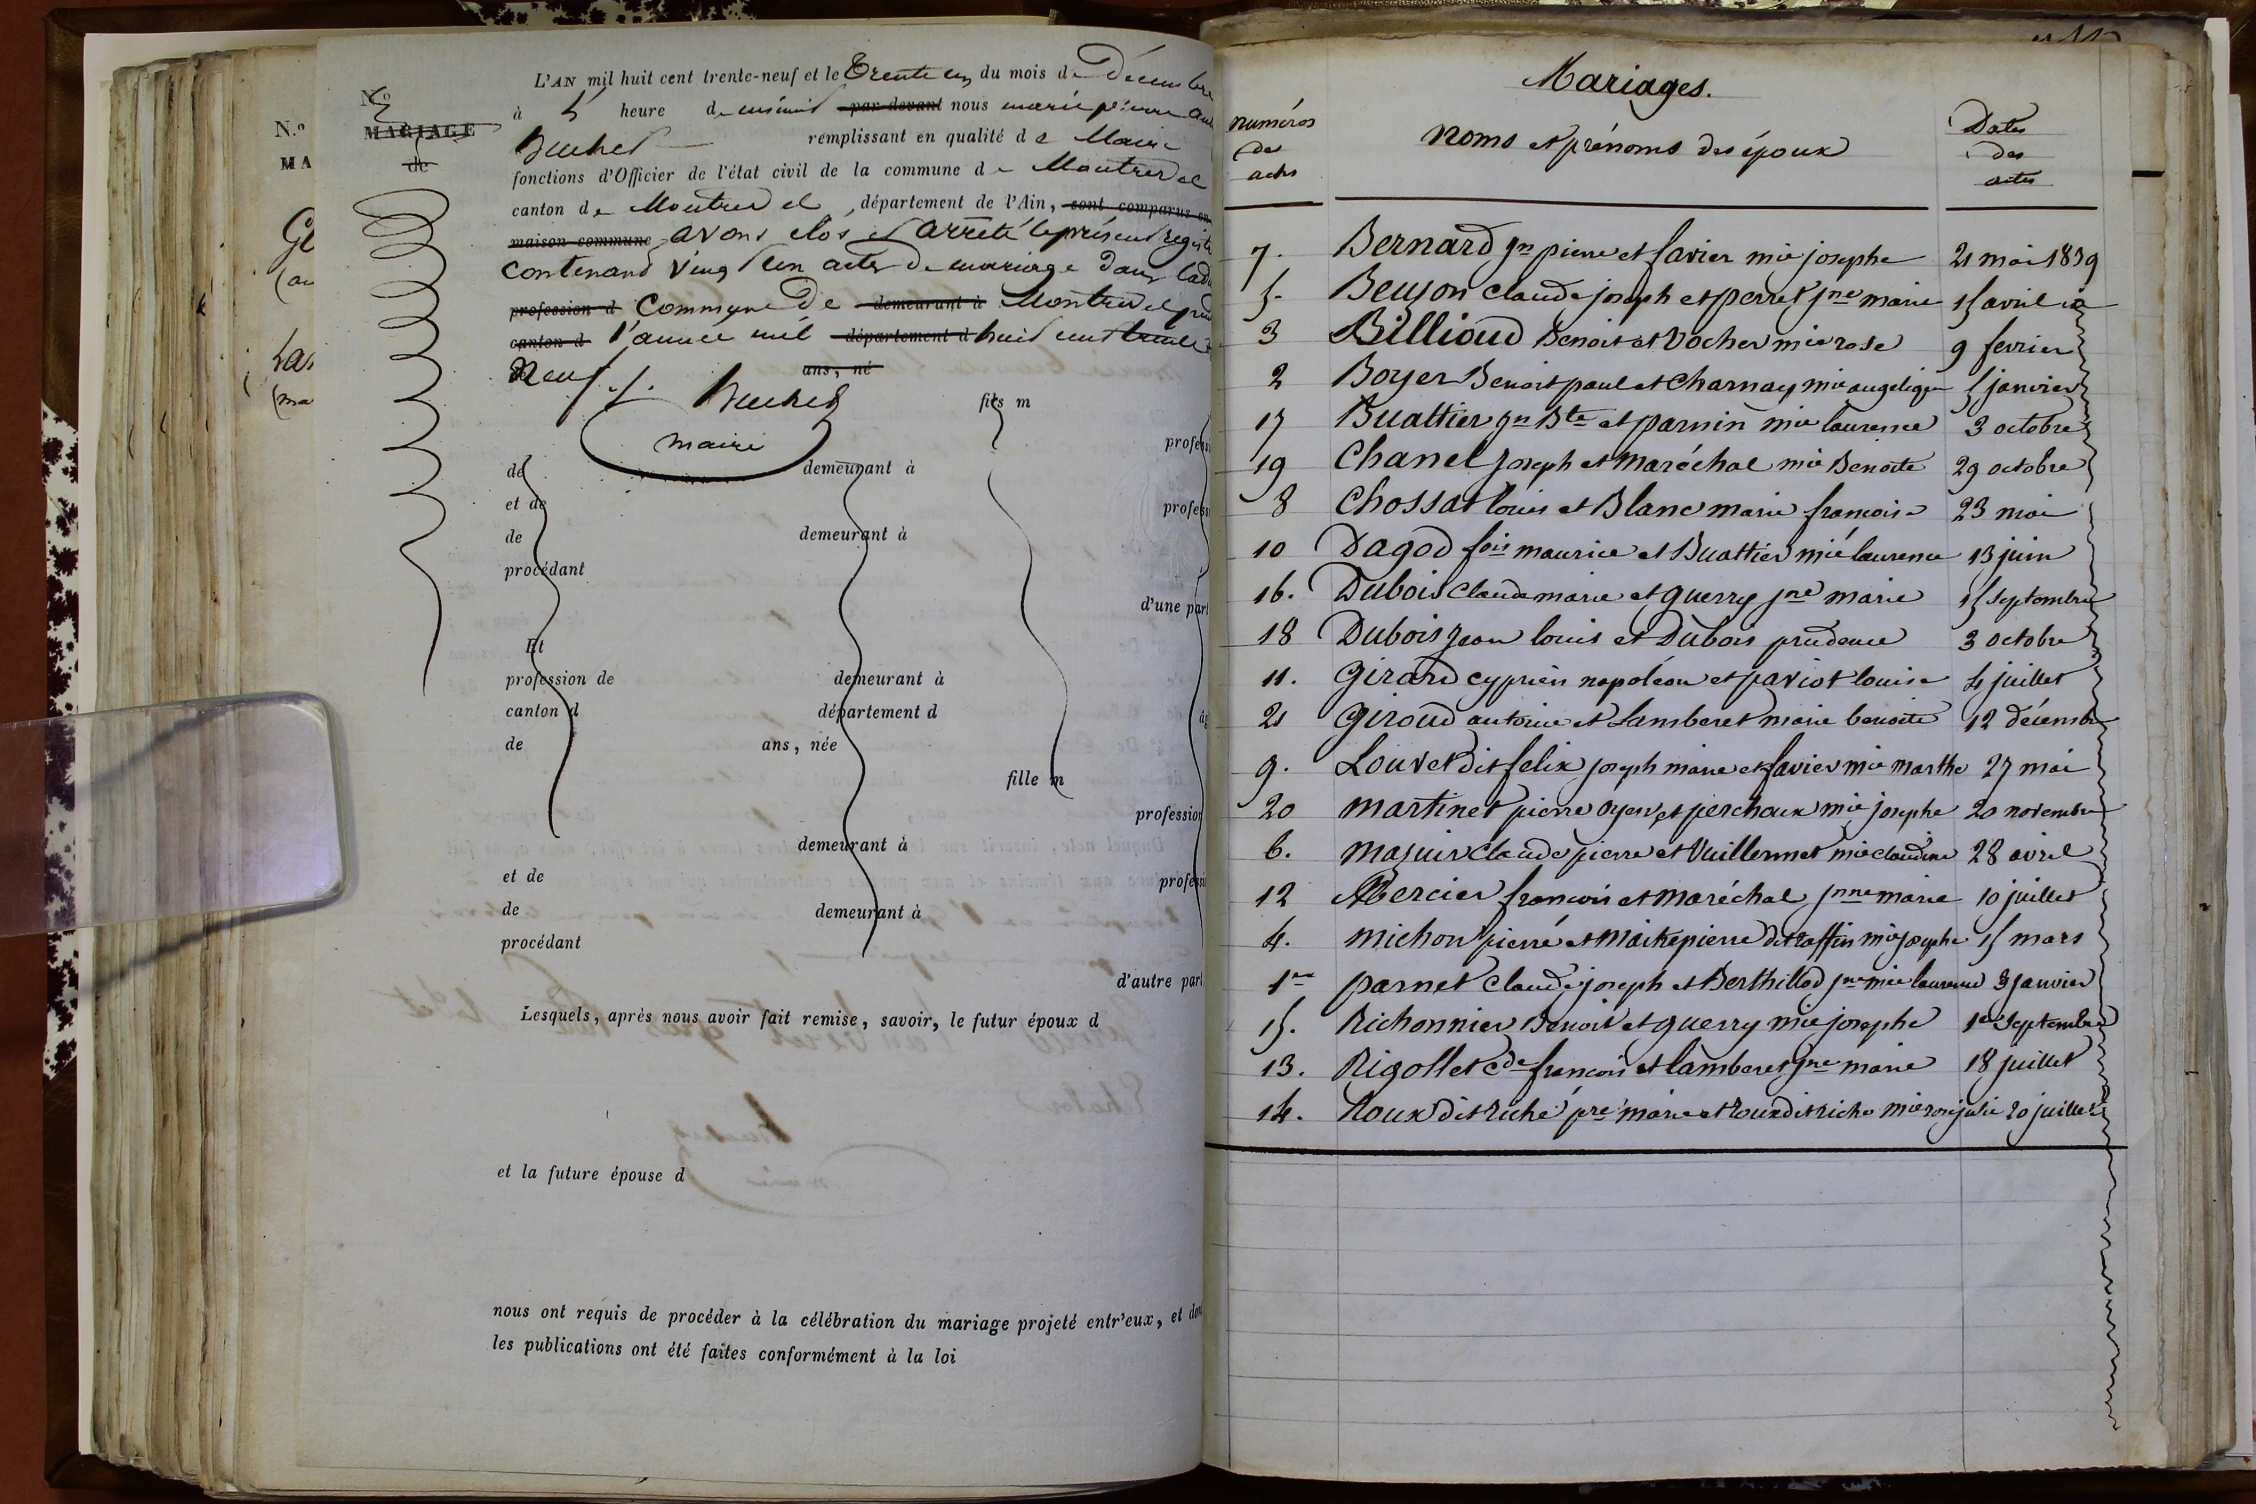 N.º
MA
N.º
MARIAGE
de
L'AN mil huit cent trente-neuf et le Trente un du mois de Décembre
à heure de nous marie pierre
Buchet remplissant en qualité de Maire
fonctions d'Officier de l'état civil de la commune de Montrevel
canton de Montrevel, département de l'Ain, sont comparus en
maison commune avons clos et arrêté le présent registre
contenant vingt un actes de mariage dans
profession d Commune de demeurant à Montrevel
canton d l'année mil département d huit cent trente
neuf ./. ans, né
Buchet
maire
fils m
profess
de demeurant à
et de profess
de demeurant à
procédant
d'une part
Et
profession de demeurant à
canton d département d
de ans, née
fille m
profession
demeurant à
et de profess
de demeurant à
procédant
d'autre part
Lesquels, après nous avoir fait remise, savoir, le futur époux d
et la future épouse d
nous ont requis de procéder à la célébration du mariage projeté entr'eux, et dont
les publications ont été faites conformément à la loi
Mariages.
numéros des actes
noms et prénoms des époux
Dates des actes
7. Bernard jn pierre et favier mie josephe 21 mai 1839
5. Beuson claude joseph et perret jne marie 15 avril id
3 Billioud Benoit et Vocher mie rose 9 fevrier
2 Boyer Benoit paul et Charnay mie angelique 5 janvier
17 Buattier jn Bte et parnin mie laurence 3 octobre
19 Chanel joseph et Maréchal mie Benoite 29 octobre
8 Chossat louis et Blanc marie francoise 23 mai
10 Dagod fois maurice et Buattier mie laurence 13 juin
16. Dubois Claude marie et guerry jne marie 15 septembre
18 Dubois jean louis et Dubois prudence 3 octobre
11. Girard cyprien napoléon et paviot louise 4 juillet
21 Giroud antoine et Lamberet marie benoite 12 décembre
9. Louvet dit felix joseph marie et favier mie marthe 27 mai
20 Martinet pierre oyen et perchoux mie josephe 20 novembre
6. Majuir claude pierre et Vuillermet mie claudine 28 avril
12 Mercier francois et Maréchal jnne marie 10 juillet
4. Michon pierre et Maitrepierre dit raffin mie josephe 15 mars
1er parnet Claude joseph et Berthillod jne mie laurence 8 janvier
15. Richonnier Benoit et guerry mie josephe 1er Septembre
13. Rigollet Cde francois et lamberet jne marie 18 juillet
14. Roux dit riche pre marie et roux dit riche mie rose julie 20 juillet